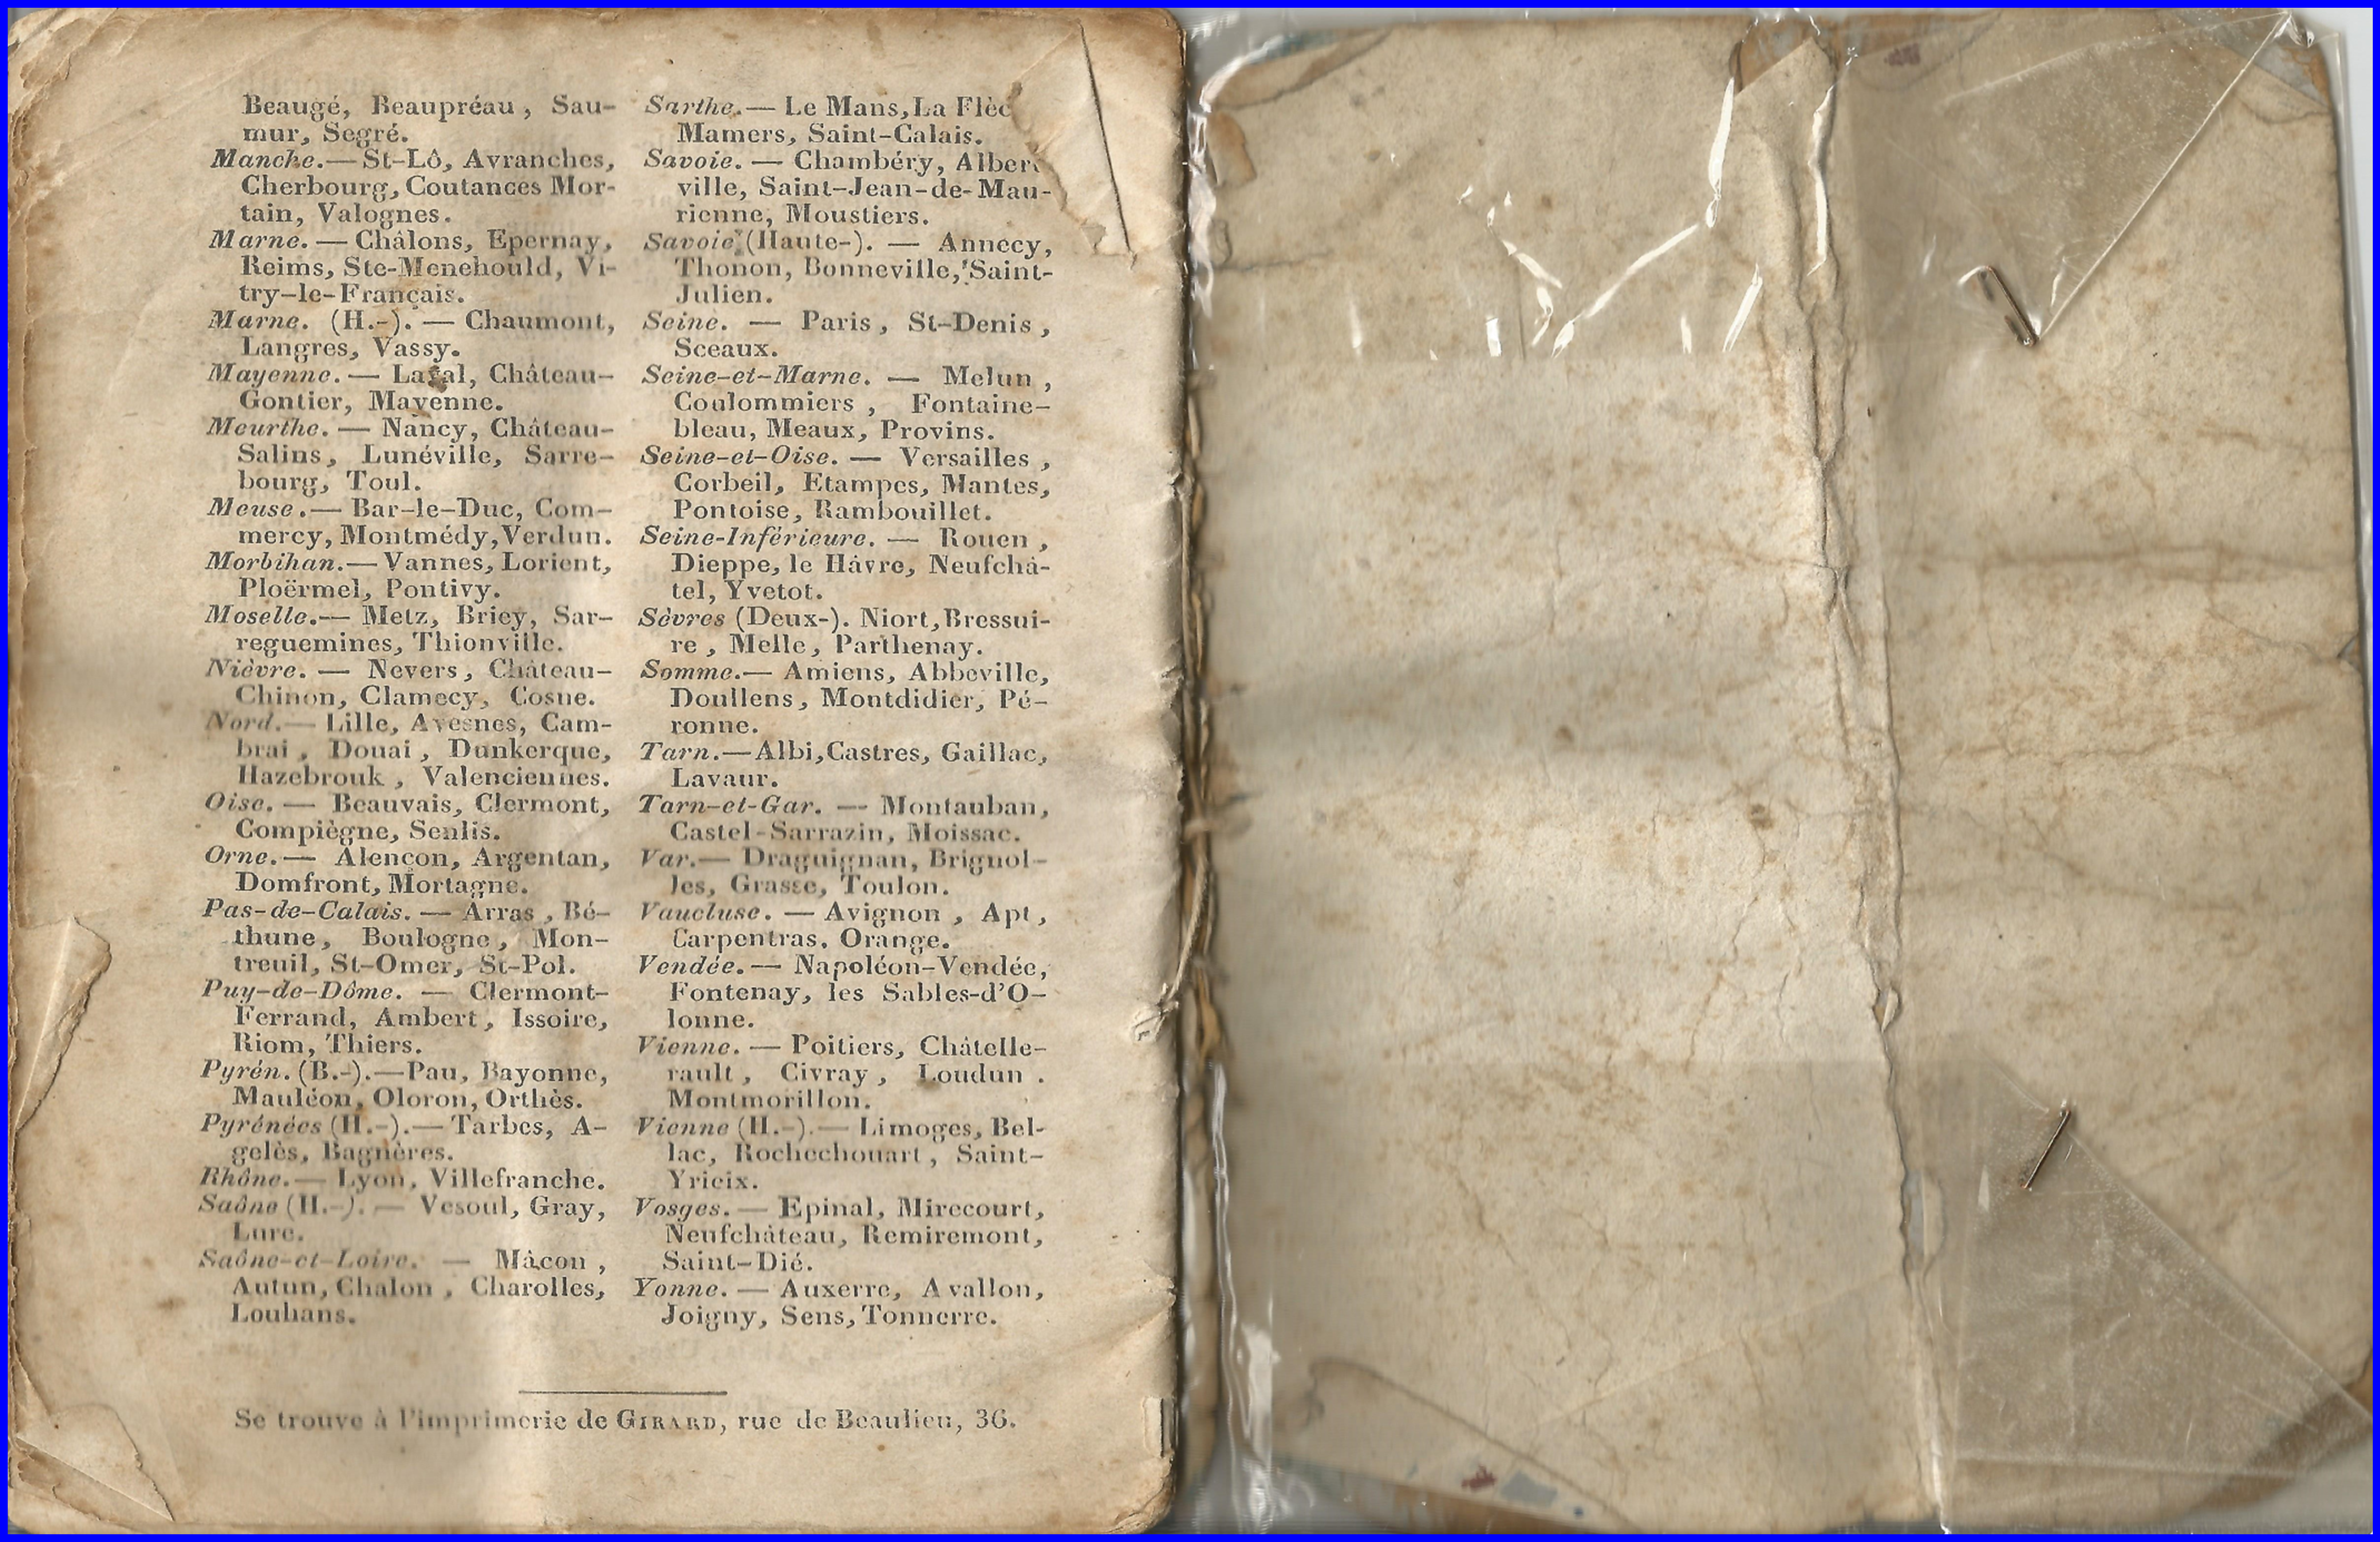 Beaugé, Beaupréau, Sau-
mur, Segré.
Manche.— St-Lô, Avranches,
Cherbourg, Coutances Mor-
tain, Valognes.
Marne. — Châlons, Epernay,
Reims, Ste-Menehould, Vi-
try-le-Français.
Marne. (H.-). — Chaumont,
Langres, Vassy.
Mayenne. — Laval, Château-
Gontier, Mayenne.
Meurthe. — Nancy, Château-
Salins, Lunéville, Sarre-
bourg, Toul.
Meuse.— Bar-le-Duc, Com-
mercy, Montmédy, Verdun.
Morbihan.— Vannes, Lorient,
Ploërmel, Pontivy.
Moselle.— Metz, Briey, Sar-
reguemines, Thionville.
Nièvre. — Nevers, Château-
Chinon, Clamecy, Cosne.
Nord.— Lille, Avesnes, Cam-
brai, Douai, Dunkerque,
Hazebrouk, Valenciennes.
Oise. — Beauvais, Clermont,
Compiègne, Senlis.
Orne.— Alençon, Argentan,
Domfront, Mortagne.
Pas-de-Calais. — Arras, Bé-
thune, Boulogne, Mon-
treuil, St-Omer, St-Pol.
Puy-de-Dôme. — Clermont-
Ferrand, Ambert, Issoire,
Riom, Thiers.
Pyrén. (B.-).—Pau, Bayonne,
Mauléon, Oloron, Orthès.
Pyrénées (H.-).— Tarbes, A-
gelès, Bagnères.
Rhône.— Lyon, Villefranche.
Saône (H.-). — Vesoul, Gray,
Lure.
Saône-et-Loire. — Mâcon,
Autun, Chalon, Charolles,
Louhans.
Sarthe.— Le Mans, La Flèc
Mamers, Saint-Calais.
Savoie. — Chambéry, Albert
ville, Saint-Jean-de-Mau-
rienne, Moustiers.
Savoie (Haute-). — Annecy,
Thonon, Bonneville, Saint-
Julien.
Seine. — Paris, St-Denis,
Sceaux.
Seine-et-Marne. — Melun,
Coulommiers, Fontaine-
bleau, Meaux, Provins.
Seine-et-Oise. — Versailles,
Corbeil, Etampes, Mantes,
Pontoise, Rambouillet.
Seine-Inférieure. — Rouen,
Dieppe, le Hâvre, Neufchâ-
tel, Yvetot.
Sèvres (Deux-). Niort, Bressui-
re, Melle, Parthenay.
Somme.— Amiens, Abbeville,
Doullens, Montdidier, Pé-
ronne.
Tarn.—Albi, Castres, Gaillac,
Lavaur.
Tarn-et-Gar. — Montauban,
Castel-Sarrazin, Moissac.
Var.— Draguignan, Brignol-
les, Grasse, Toulon.
Vaucluse. — Avignon, Apt,
Carpentras, Orange.
Vendée. — Napoléon-Vendée,
Fontenay, les Sables-d'O-
lonne.
Vienne. — Poitiers, Châtelle-
rault, Civray, Loudun.
Montmorillon.
Vienne (H.-).— Limoges, Bel-
lac, Rochechouart, Saint-
Yrieix.
Vosges. — Epinal, Mirecourt,
Neufchâteau, Remiremont,
Saint-Dié.
Yonne. — Auxerre, Avallon,
Joigny, Sens, Tonnerre.
Se trouve à l'imprimerie de GIRARD, rue de Beaulieu, 36.